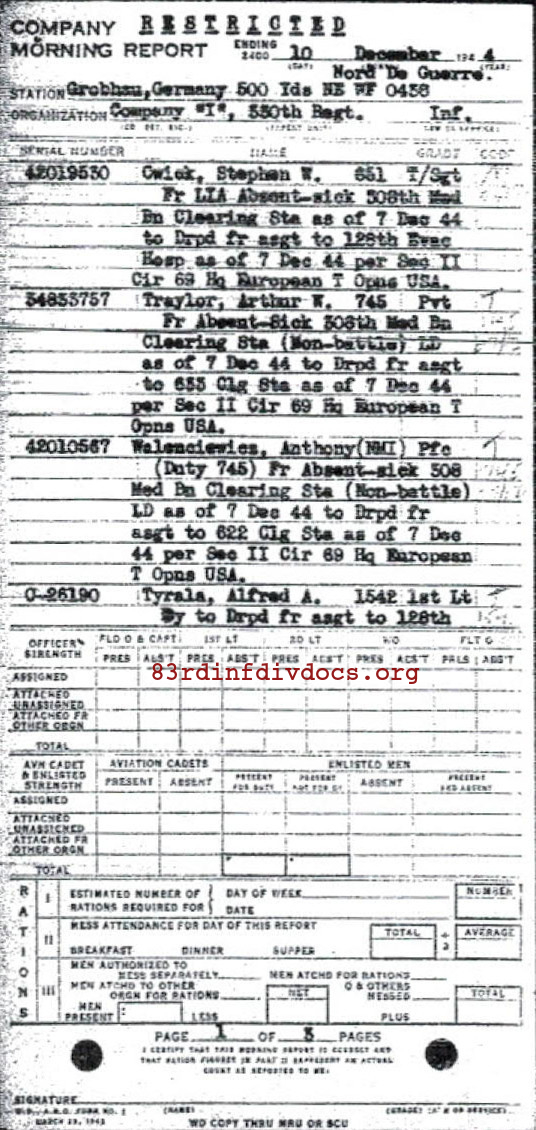 COMPANY RESTRICTED
MORNING REPORT ENDING 2400 10 December 194 4
(DAY) (YEAR)
Nord De Guerre.
STATION Grobhau, Germany 500 Yds NE WF 0438
ORGANIZATION Company "I", 330th Regt. Inf.
SERIAL NUMBER NAME GRADE CODE
42019530 Cwick, Stephen W. 651 T/Sgt
Fr LIA Absent-sick 308th Med
Bn Clearing Sta as of 7 Dec 44
to Drpd fr asgt to 128th Evac
Hosp as of 7 Dec 44 per Sec II
Cir 69 Hq European T Opns USA.
34833757 Traylor, Arthur W. 745 Pvt
Fr Absent-Sick 308th Med Bn
Clearing Sta (Non-battle) LD
as of 7 Dec 44 to Drpd fr asgt
to 633 Clg Sta as of 7 Dec 44
per Sec II Cir 69 Hq European T
Opns USA.
42010567 Walenciewics, Anthony(NMI) Pfc
(Duty 745) Fr Absent-sick 308
Med Bn Clearing Sta (Non-battle)
LD as of 7 Dec 44 to Drpd fr
asgt to 622 Clg Sta as of 7 Dec
44 per Sec II Cir 69 Hq European
T Opns USA.
O-26190 Tyrala, Alfred A. 1542 1st Lt
Dy to Drpd fr asgt to 128th
OFFICER STRENGTH FLD O & CAPT 1ST LT 2D LT WO FLT O
PRES ABS'T PRES ABS'T PRES ABS'T PRES ABS'T PRES ABS'T
83rdinfdivdocs.org
ASSIGNED
ATTACHED UNASSIGNED
ATTACHED FR OTHER ORGN
TOTAL
AVN CADET & ENLISTED STRENGTH AVIATION CADETS ENLISTED MEN
PRESENT ABSENT PRESENT FOR DUTY PRESENT NOT FOR DY ABSENT PRESENT AND ABSENT
ASSIGNED
ATTACHED UNASSIGNED
ATTACHED FR OTHER ORGN
TOTAL
RATIONS
I ESTIMATED NUMBER OF RATIONS REQUIRED FOR { DAY OF WEEK NUMBER
DATE
II MESS ATTENDANCE FOR DAY OF THIS REPORT TOTAL ÷ 3 AVERAGE
BREAKFAST DINNER SUPPER
III MEN AUTHORIZED TO MESS SEPARATELY MEN ATCHD FOR RATIONS
MEN ATCHD TO OTHER ORGN FOR RATIONS NET O & OTHERS MESSED TOTAL
MEN PRESENT LESS PLUS
PAGE 1 OF 3 PAGES
I CERTIFY THAT THIS MORNING REPORT IS CORRECT AND
THAT RATION FIGURES IN PART II REPRESENT AN ACTUAL
COUNT AS REPORTED TO ME:
SIGNATURE
W.D., A.G.O. FORM NO. 1 (NAME) (GRADE)
MARCH 23, 1943
WD COPY THRU MRU OR SCU